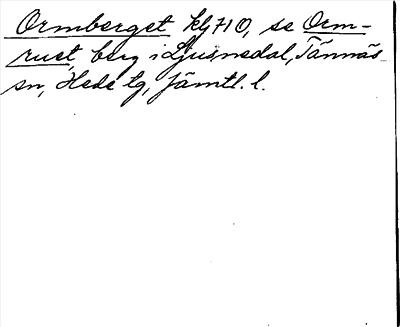 Ormberget klj710, se Orm-
rust, berg i Ljusnedal, Tännäs
sn, Hede tg, Jämtl. l.